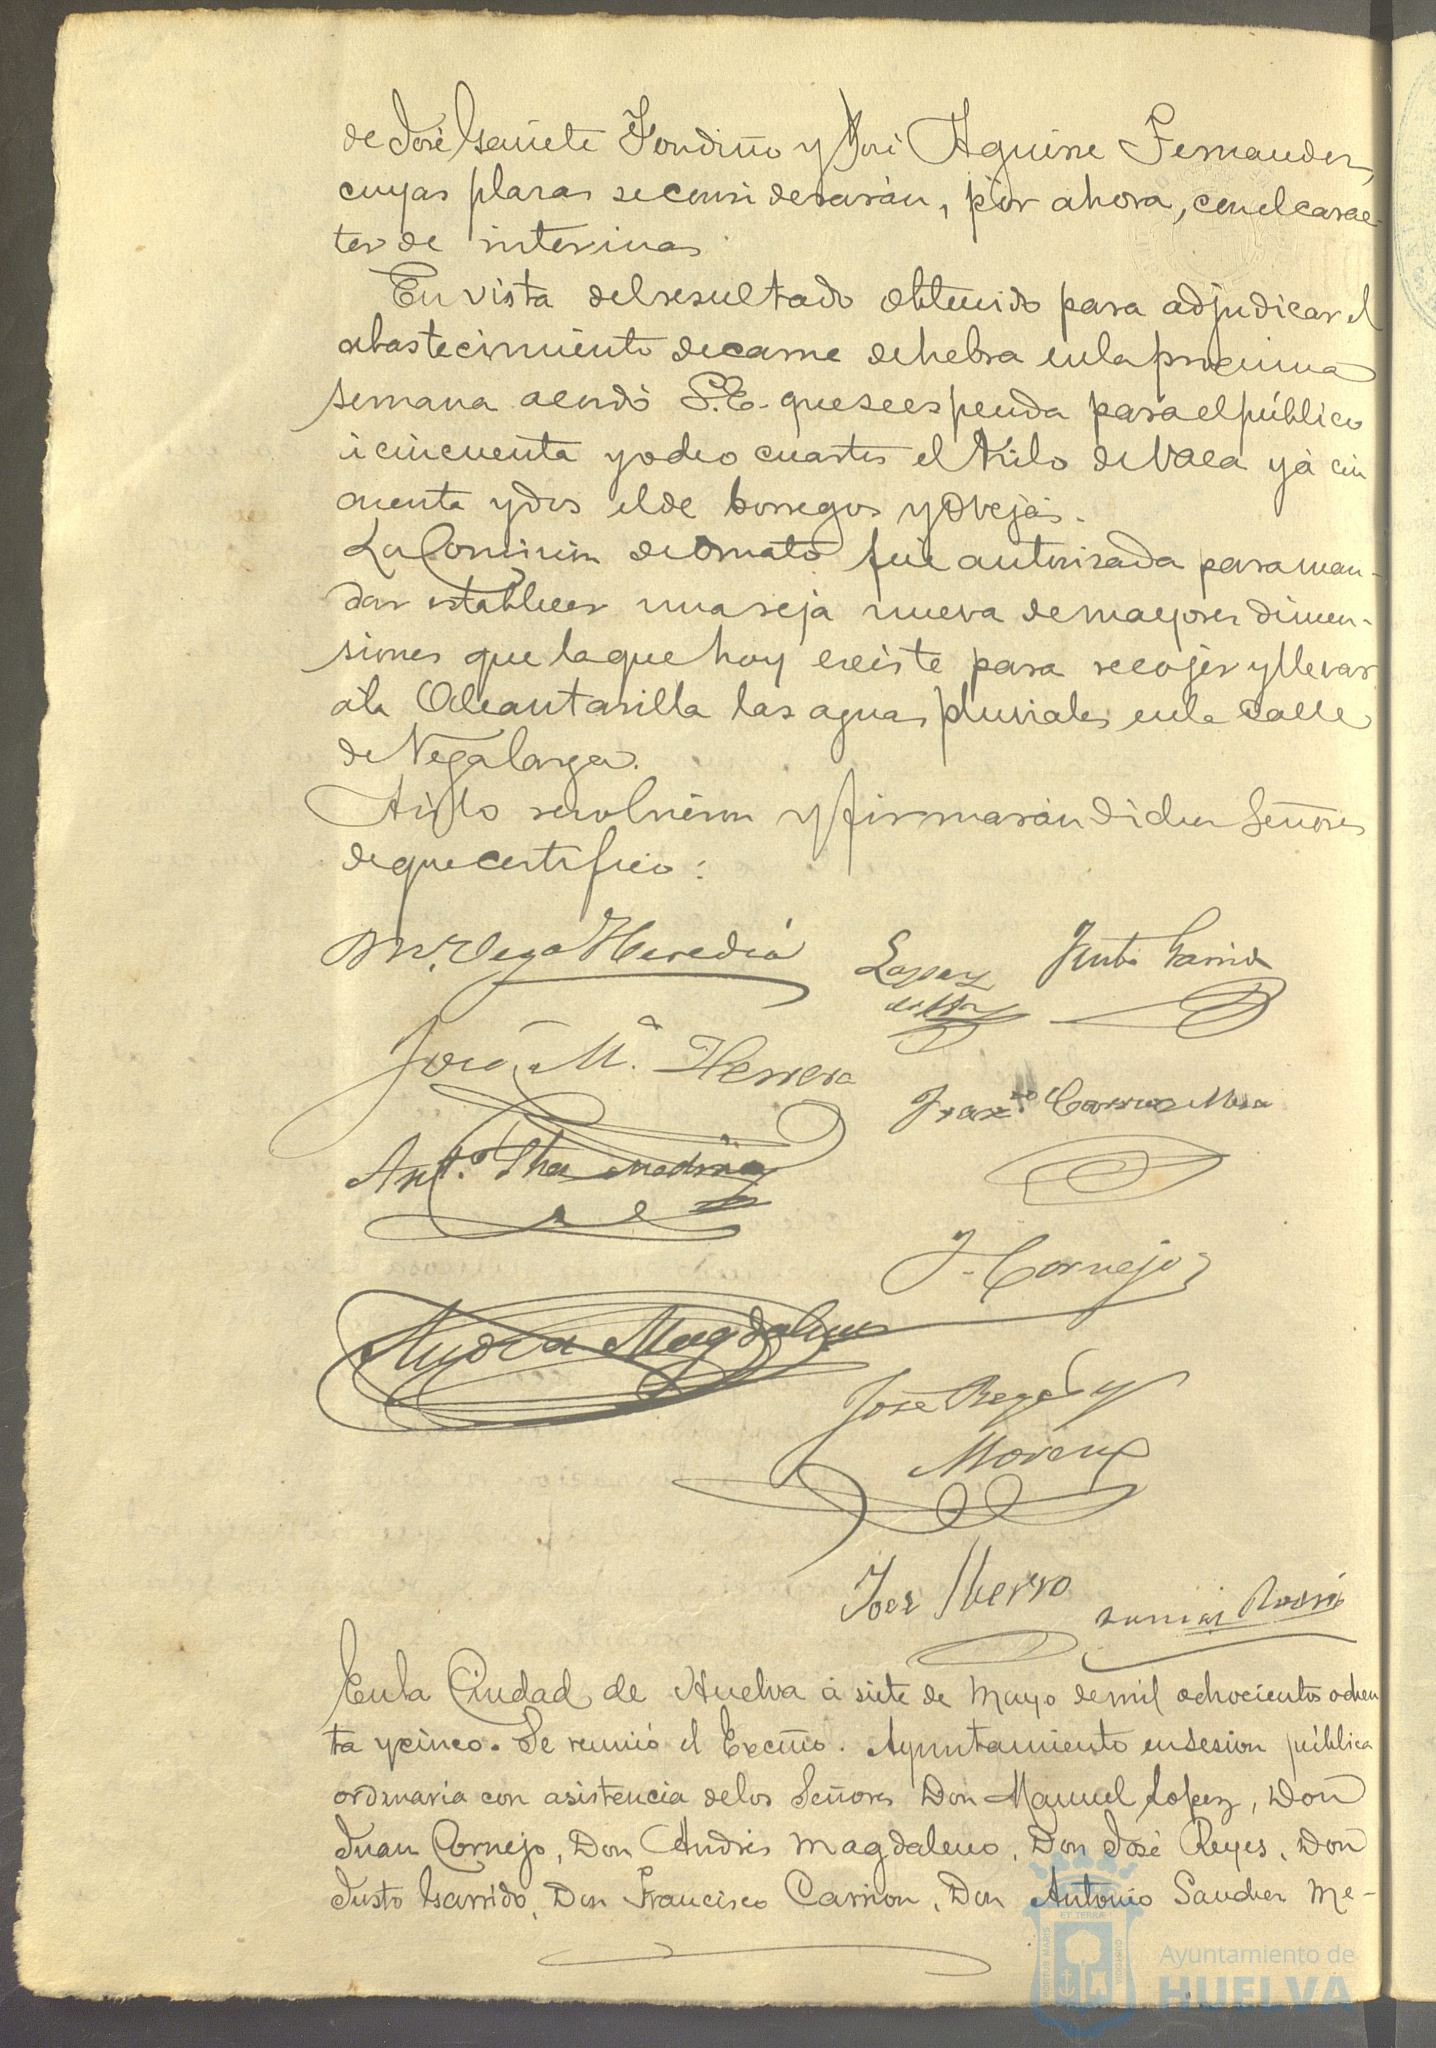 de José Gañete Fondiño y José Aguirre Fernandez,
cuyas plazas se considerarán, por ahora, con el carac-
ter de interinas.
En vista del resultado obtenido para adjudicar el
abastecimiento de carne de hebra en la procima
semana acordó S.E. que se espenda para el público
á cincuenta y ocho cuartos el Kilo de Vaca y á cin
cuenta y dos el de borregos y Ovejas.
La Comision de Ornato fué autorizada para man-
dar establecer una reja nueva de mayores dimen-
siones que la que hoy existe para recojer y llevar
á la Alcantarilla las aguas pluviales en la Calle
de Vegalarga.
Así lo resolvieron y firmarán dichos Señores
de que certifico:
M. Vega Heredia
Lopez
Justo Garrido
José Mª. Herrera
Franco Carrion Mesa
Anto. Shez Medina
J. Cornejo
Andrés Magdaleno
José Reyes y
Moreno
José Hierro
En la Ciudad de Huelva á siete de Mayo de mil ochocientos ochen
ta y cinco. Se reunió el Excmo. Ayuntamiento en sesion pública
ordinaria con asistencia de los Señores Don Manuel Lopez, Don
Juan Cornejo, Don Andrés Magdaleno, Don José Reyes, Don
Justo Garrido, Don Francisco Carrion, Don Antonio Sanchez Me-
Ayuntamiento de
HUELVA